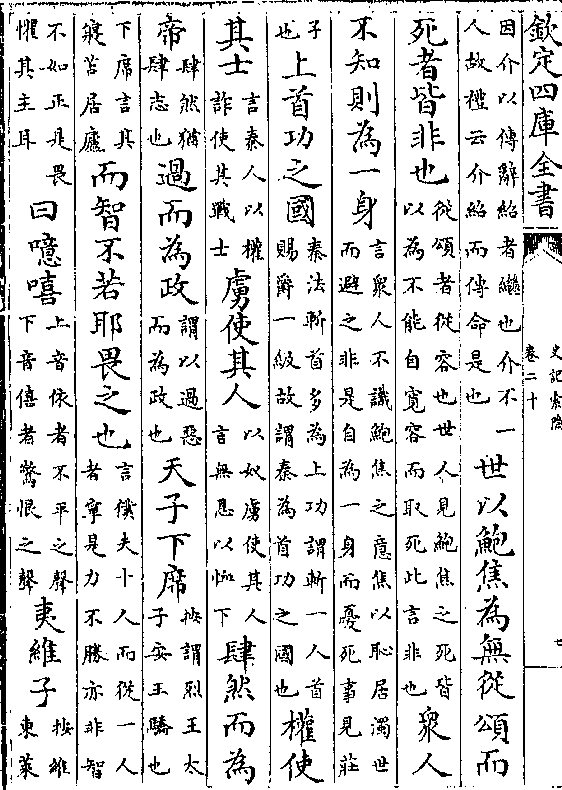 欽定四庫全書
史記索隱
卷二十
七
因介以傳辭紹者繼也介不一人故禮云介紹而傳命是也世以鮑焦為無從頌而
死者皆非也從頌者從容也世人見鮑焦之死皆以為不能自寛容而取死此言非也衆人
不知則為一身言衆人不識鮑焦之意焦以恥居濁世而避之非是自為一身而憂死事見莊
子也上首功之國秦法斬首多為上功謂斬一人首賜爵一級故謂秦為首功之國也權使
其士言秦人以權詐使其戰士虜使其人以奴虜使其人言無恩以恤下肆然而為
帝肆然猶肆志也過而為政謂以過惡而為政也天子下席按謂烈王太子安王驕也
下席言其寢苫居廬而智不若耶畏之也言僕夫十人而從一人者寧是力不勝亦非智
不如正是畏懼其主耳曰噫嘻上音依者不平之聲下音僖者驚恨之聲夷維子按維東萊